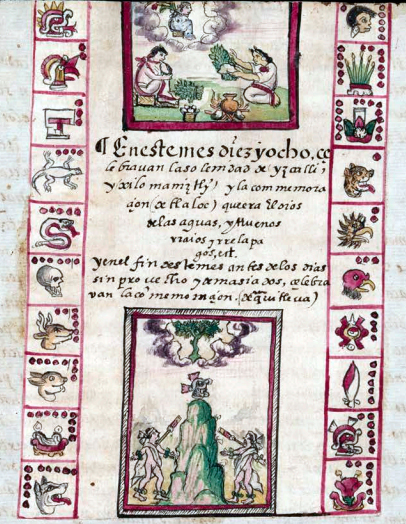 ¶ En este mes diez y ocho, ce
lebravan la solemdad de yzcalli,
y xilomaniztli) y la conmemora
çion (de tlaloc) que era Dios
de las aguas, y truenos
y raios y rrelapa
gos, est.
y en el fin deste mes antes de los dias
sin provecho y demasiados, celebra
van la comemoraçion.